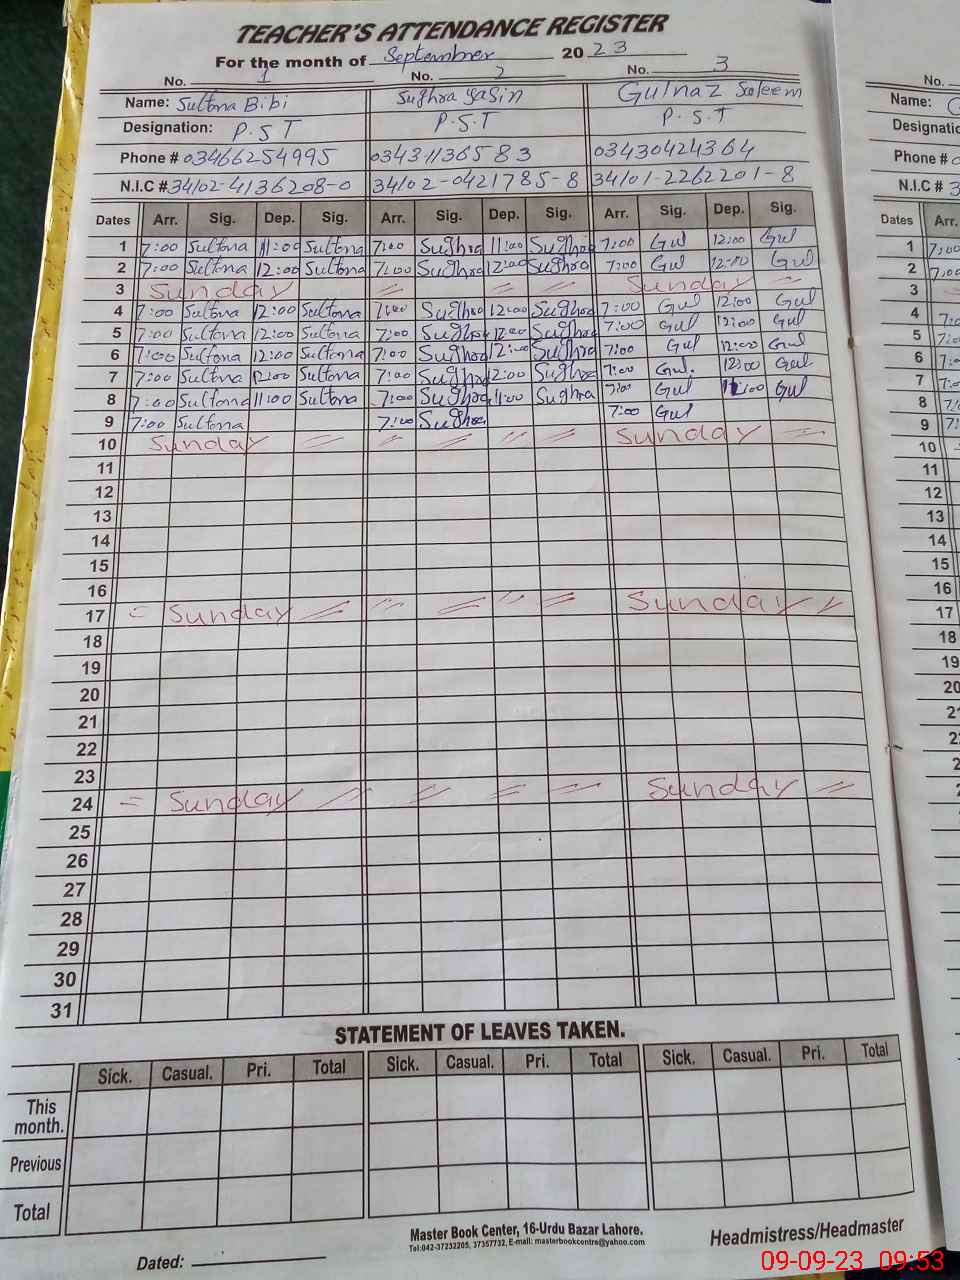 TEACHER'S ATTENDANCE REGISTER
For the month of September 2023
No. 1 No. 2 No. 3 No.
Name: Sultana Bibi Sughra Yasin Gulnaz Saleem Name:
Designation: P.S.T P.S.T P.S.T
Phone # 03466254995 03431136583 03430424364 Phone #
N.I.C # 34102-4136208-0 34102-0421785-8 34101-2262201-8 N.I.C #
Dates Arr. Sig. Dep. Sig. Arr. Sig. Dep. Sig. Arr. Sig. Dep. Sig. Dates Arr.
1 7:00 Sultana 11:00 Sultana 7:00 Sughra 11:00 Sughra 7:00 Gul 12:00 Gul 1 7:00
2 7:00 Sultana 12:00 Sultana 7:00 Sughra 12:00 Sughra 7:00 Gul 12:00 Gul 2 7:00
3 Sunday Sunday 3
4 7:00 Sultana 12:00 Sultana 7:00 Sughra 12:00 Sughra 7:00 Gul 12:00 Gul 4
5 7:00 Sultana 12:00 Sultana 7:00 Sughra 12:00 Sughra 7:00 Gul 12:00 Gul 5
6 7:00 Sultana 12:00 Sultana 7:00 Sughra 12:00 Sughra 7:00 Gul 12:00 Gul 6
7 7:00 Sultana 12:00 Sultana 7:00 Sughra 12:00 Sughra 7:00 Gul. 12:00 Gul 7
8 7:00 Sultana 11:00 Sultana 7:00 Sughra 11:00 Sughra 7:00 Gul Gul 8
9 7:00 Sultana 7:00 Sughra 7:00 Gul 9
10 Sunday Sunday 10
11 11
12 12
13 13
14 14
15 15
16 16
17 Sunday Sunday 17
18 18
19 19
20 20
21
22
23
24 Sunday Sunday
25
26
27
28
29
30
31
STATEMENT OF LEAVES TAKEN.
Sick. Casual. Pri. Total Sick. Casual. Pri. Total Sick. Casual. Pri. Total
This month.
Previous
Total
Master Book Center, 16-Urdu Bazar Lahore.
Tel:042-37232205, 37357732, E-mail: masterbookcentre@yahoo.com
Dated: Headmistress/Headmaster
09-09-23 09:53